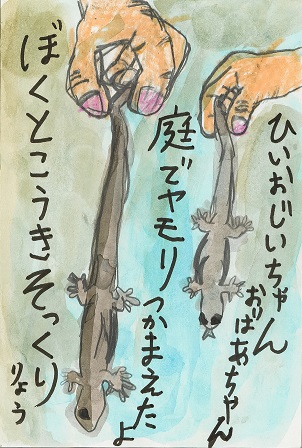 ひいおじいちゃん
おばあちゃん
庭でヤモリつかまえたよ
ぼくとこうきそっくり
りょう